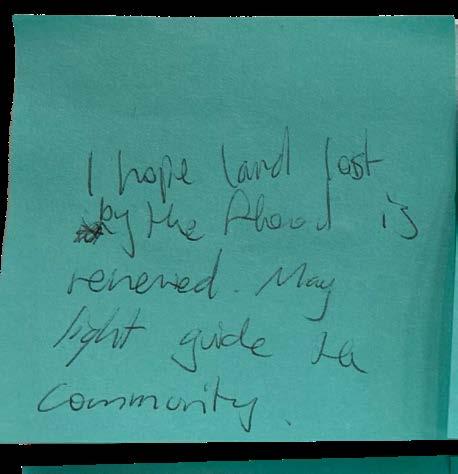 I hope land lost
by the flood is
renewed. May
light guide the
community.